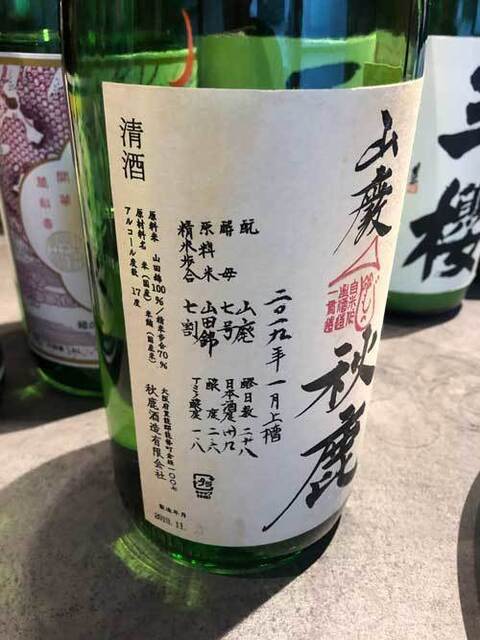 山廃
秋鹿
自米作
山廃造
貫造
二〇一九年 一月上槽
酛 山廃 醪日数 二十八
酵母 七号 日本酒度 卅九
原料米 山田錦 酸度 二・六
精米歩合 七割 アミノ酸度 一・八
清酒
原料米 山田錦100%/精米歩合70%
原材料名 米(国産) 米麹(国産米)
アルコール度数 17度
大阪府豊能郡能勢町倉垣一〇〇七
秋鹿酒造有限会社
製造年月
2019.11.
三櫻